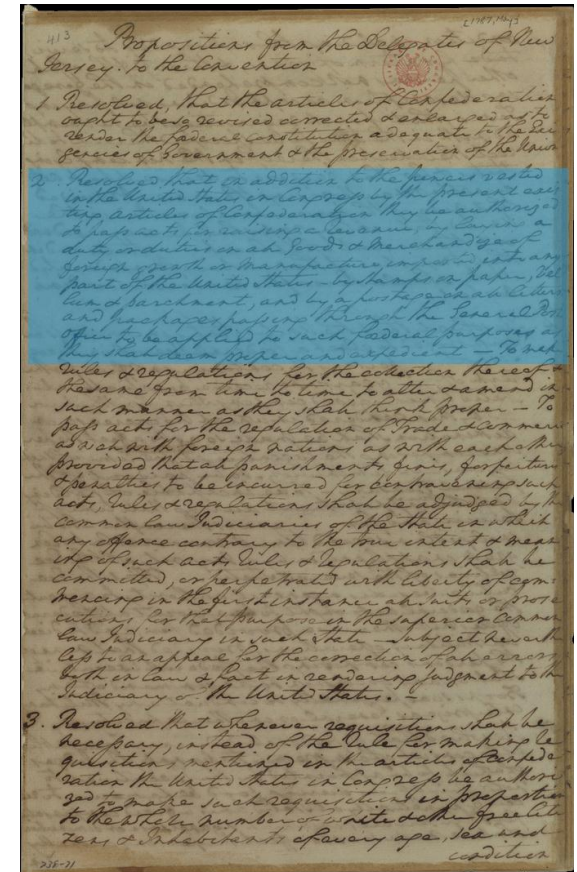 413
Propositions from the Delegates of New
Jersey. to the Convention
1. Resolved, that the articles of Confederation
ought to be so revised corrected & enlarged as to
render the federal constitution adequate to the Exi
gencies of Government & the preservation of the Union
2. Resolved that in addition to the powers vested
in the United States in Congress by the present exis
ting articles of Confederation they be authorized
to pass acts for raising a revenue, by laying a
duty or duties on all Goods & Merchandize of
foreign growth or manufacture imported into any
part of the United States - by Stamps on paper, Vel
lum & parchment, and by a postage on all letters
and packages passing through the General Post
office to be applied to such federal purposes as
they shall deem proper and expedient — To make
rules & regulations for the collection thereof &
the same from time to time to alter & amend in
such manner as they shall think proper — To
pass acts for the regulation of Trade & Commerce
as well with foreign nations as with each other
provided that all punishments fines, forfeitures
& penalties to be incurred for contravening such
acts, rules & regulations shall be adjudged by the
common law Judiciaries of the State in which
any offence contrary to the true intent & mean
ing of such acts rules & regulations shall be
committed, or perpetrated with liberty of com
mencing in the first instance all suits or prose
cutions for that purpose in the superior Common
law Judiciary in such State — subject neverthe
less to an appeal for the correction of all errors
both in law & fact in rendering Judgment to the
Judiciary of the United States. —
3. Resolved that whenever requisitions shall be
necessary, instead of the rule for making re
quisitions mentioned in the articles of Confede
ration the United States in Congress be authori
zed to make such requisitions in proportion
to the whole number of white & other free citi
zens & Inhabitants of every age, sex and
condition